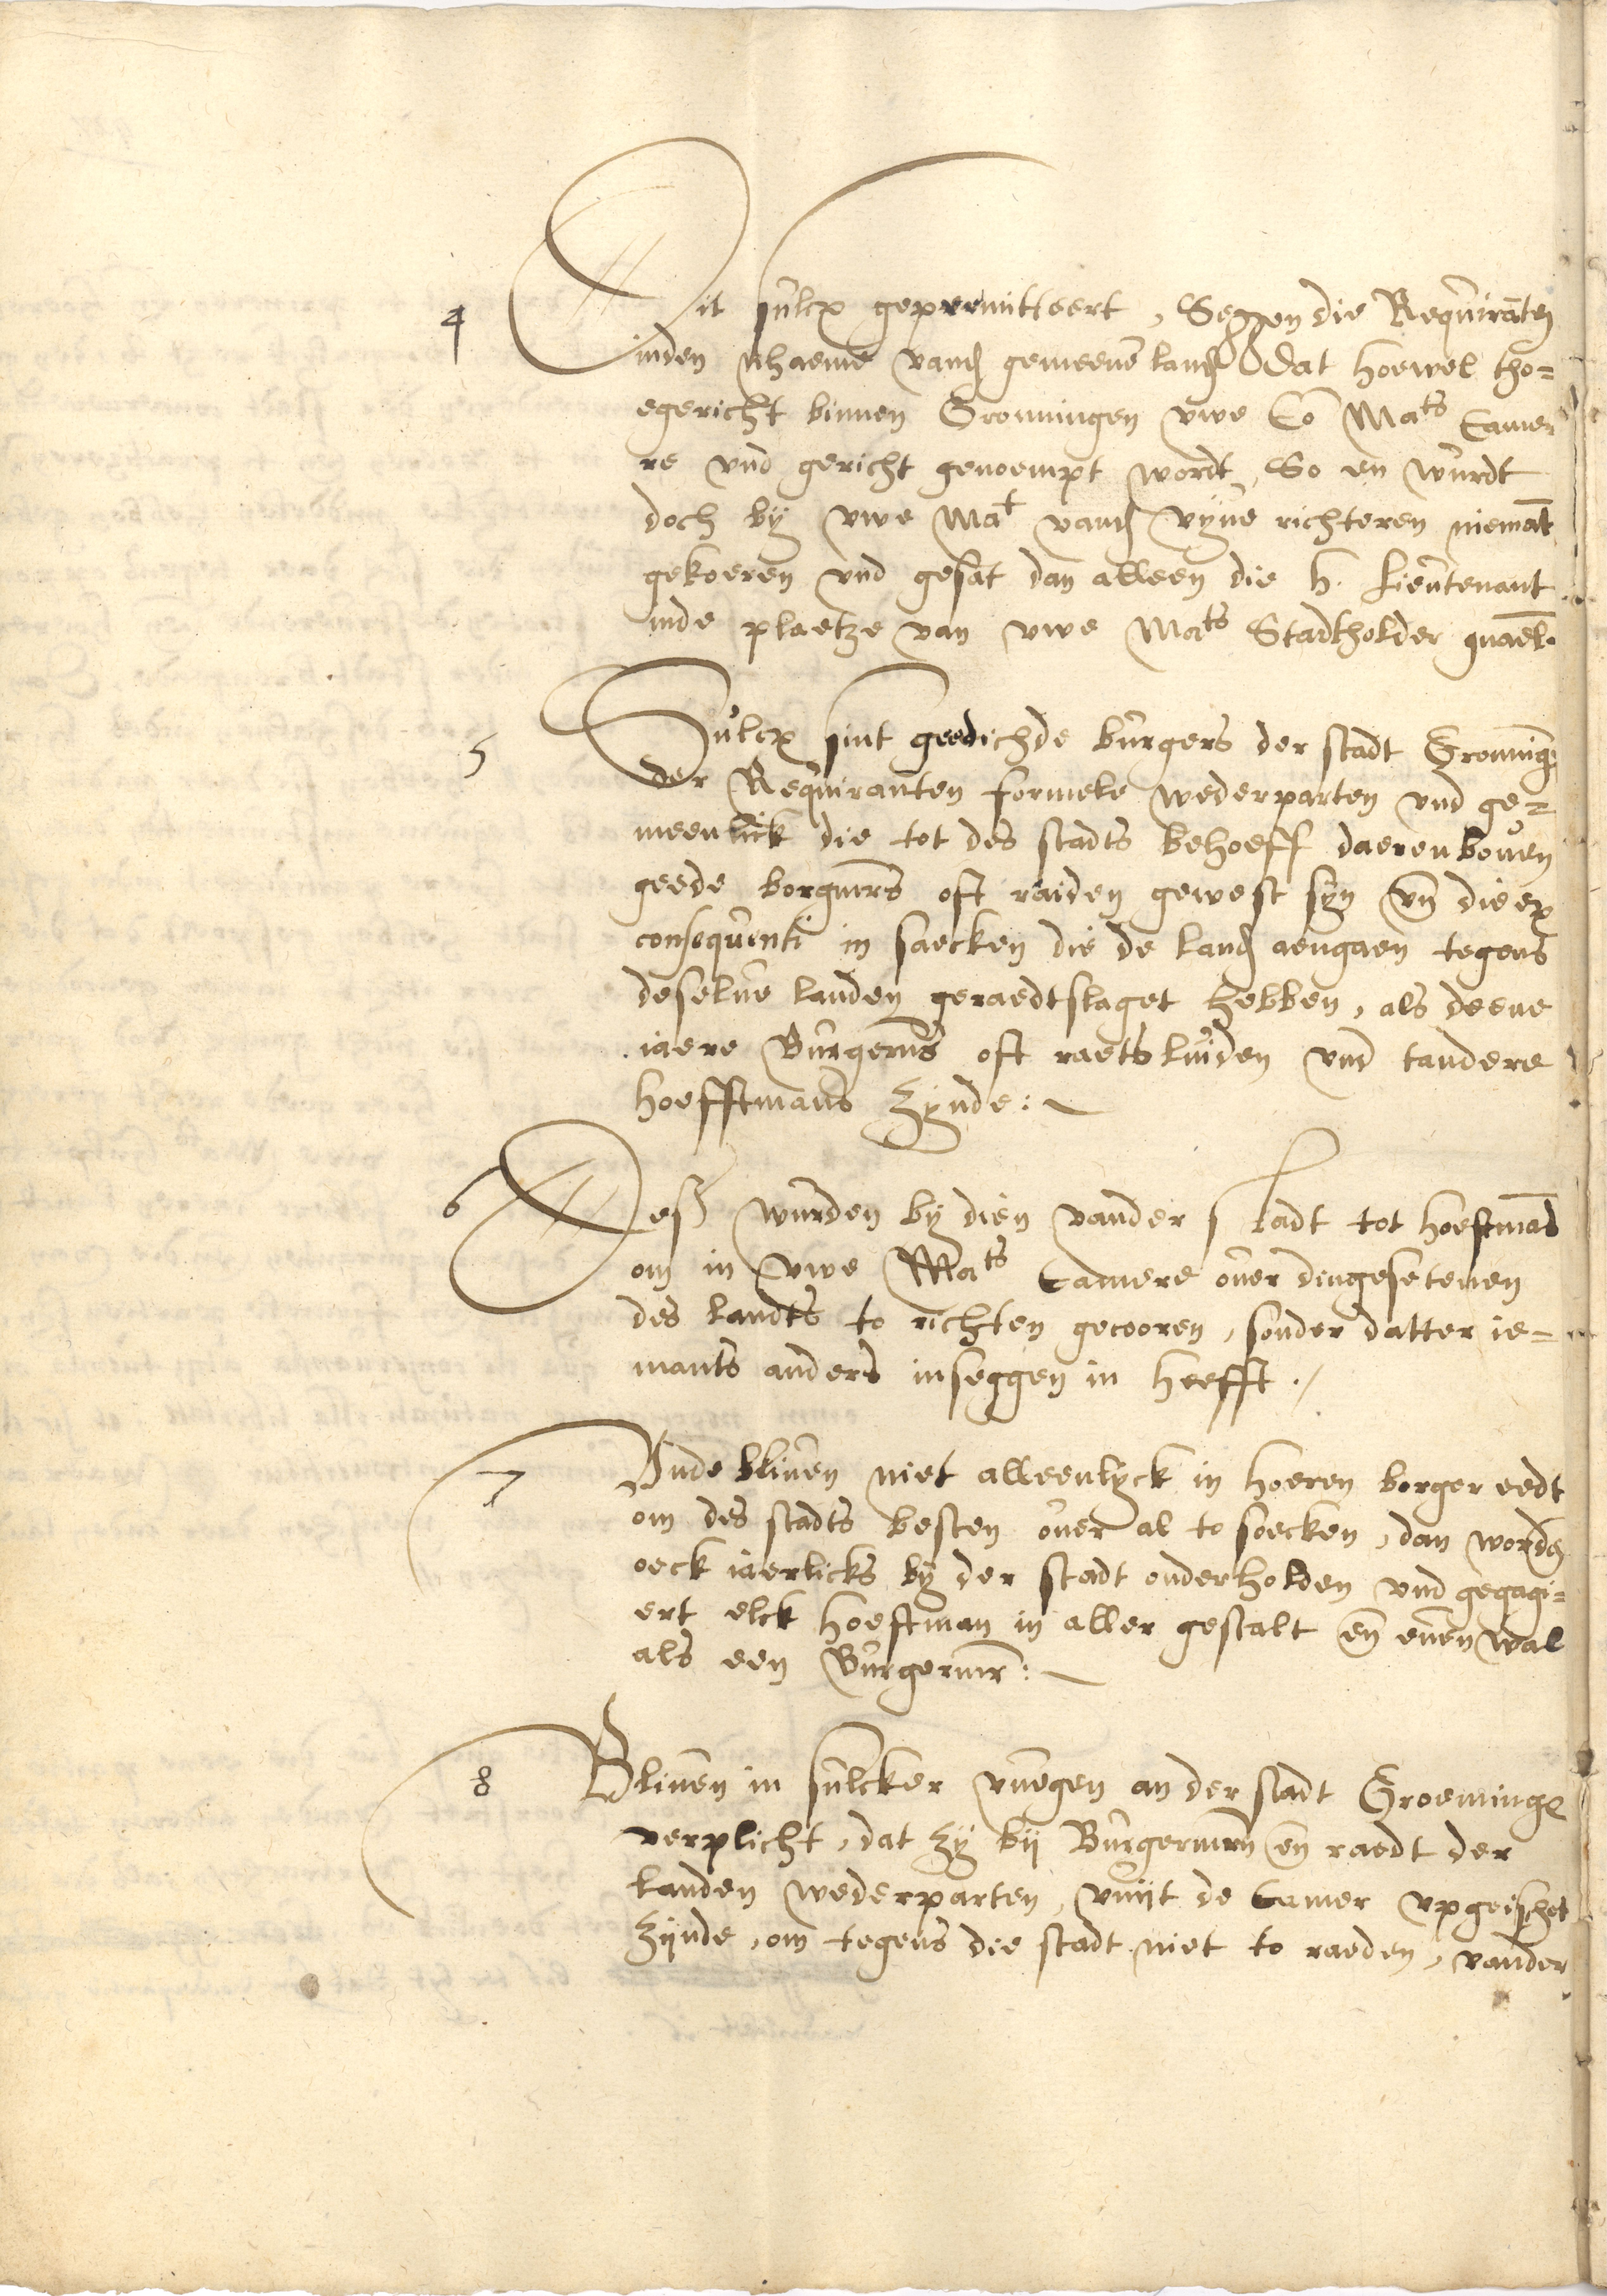 4 Dit sulcx gepremitteert, Seggen die Requiranten
inden nhaeme vand gemeene land Dat hoewel tho=
egericht binnen Gronningen uwe Co Mats Came
re und gericht genoempt wordt, So en wurdt
doch by uwe Mat vand vyve richteren niemat
gekoeren und gesat dan alleen die h. Lieutenant
inde plaetze van uwe Mats Stadtholder
5 Sulcx sint geedichde burgers der stadt Groning
der Requiranten formele wederparten und ge=
meenlick die tot des stadts behoeff daerenboven
geede borgmrs oft raiden gewest syn un die ex
consequenti in saecken die de land aengaen tegens
deselve landen geraedtslaget hebben, als deene
iaere Burgerms oft raetsluiden und tandere
hoefftmans zynde:
6 Dess wurden by dien vander stadt tot hoeftmans
om in uwe Mats Camere over dingesetenen
des landts to richten gecooren, sonder datter ie=
mants anders inseggen in heefft.
7 Unde bliven niet alleenlyck in hoeren borger eedt
om des stadts besten over al to soecken, dan worden
oeck iaerlicks by der stadt onderholden und gegagi=
ert elck hoeftman in aller gestalt en even wal
als een Burgermr:
8 Bliven in sulcker vuegen an der stadt Groeninge
verplicht, dat zy bij Burgermrn en raedt der
landen wederparten, vuijt de Camer upgeischet
zijnde, om tegens die stadt niet to raeden, vander